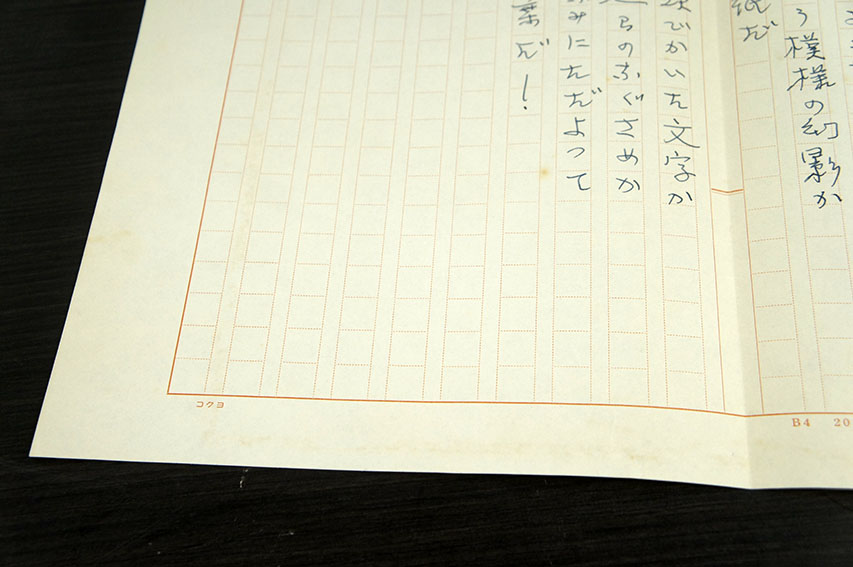 う模様の幻影か
紙だ
でかいた文字か
らのなぐさめか
みにただよって
葉だ!
コクヨ
B4 20